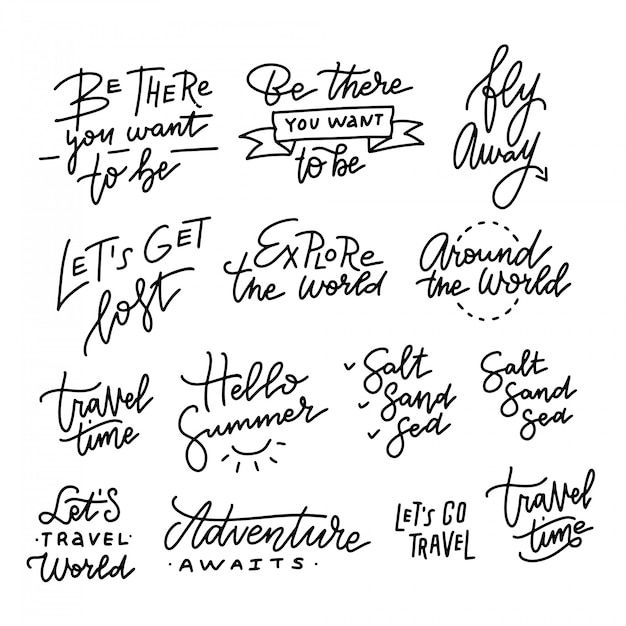 Be THeRe
you want
to be
Be there
YOU WANT
to be
fly
away
LET'S GET
lost
ExPLoRe
the world
Around
the World
travel
time
Hello
Summer
Salt
Sand
Sea
Salt
Sand
Sea
Let's
·TRAVEL·
World
Adventure
·AWAITS·
LET'S GO
TRAVEL
travel
time